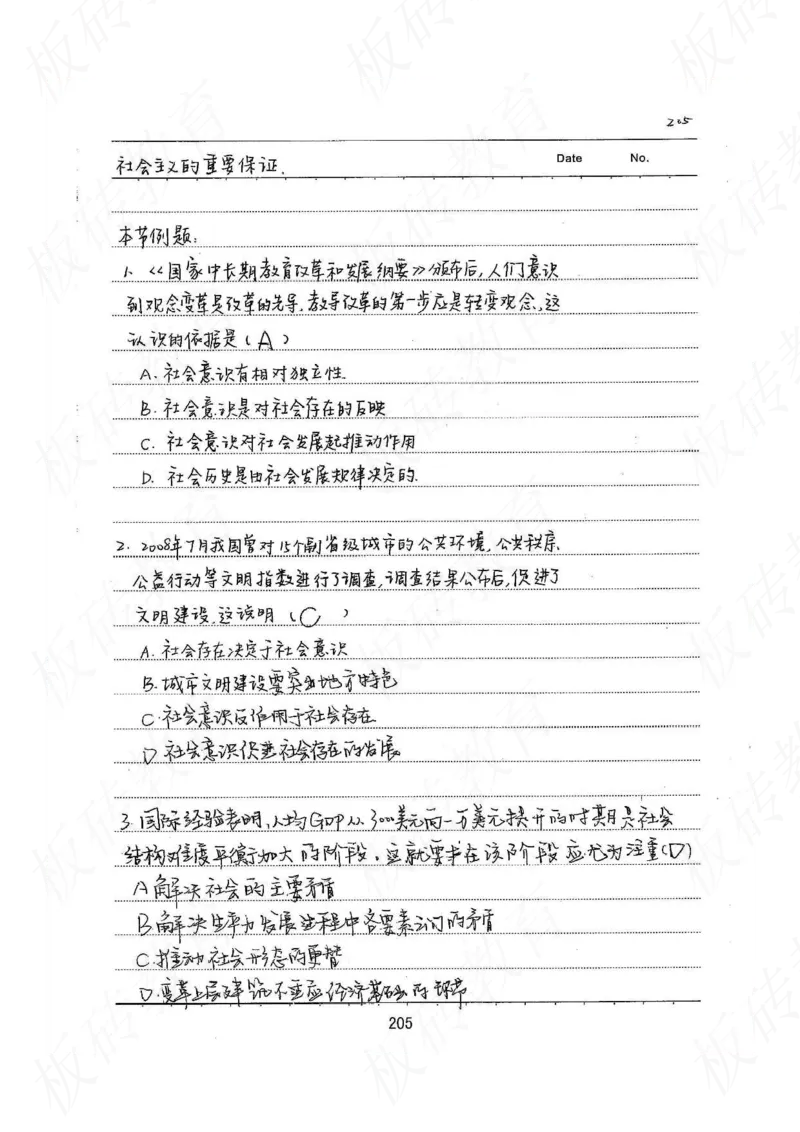 205
Date No.
社会主义的重要保证.
本节例题:
1. 《国家中长期教育改革和发展纲要》颁布后,人们意识
到观念变革是改革的先导,教导改革的第一步应是转变观念,这
认识的依据是(A)
A. 社会意识有相对独立性
B. 社会意识是对社会存在的反映
C. 社会意识对社会发展起推动作用
D. 社会历史是由社会发展规律决定的.
2. 2008年7月我国曾对15个副省级城市的公共环境,公共秩序,
公益行动等文明指数进行了调查,调查结果公布后,促进了
文明建设,这说明(C)
A. 社会存在决定于社会意识
B. 城市文明建设要突出地方特色
C. 社会意识反作用于社会存在
D 社会意识促进社会存在的发展
3. 国际经验表明,人均GDP从3000美元向一万美元提升的时期是社会
结构难度平衡加大的阶段,这就要求在该阶段应尤为注重(D)
A 解决社会的主要矛盾
B 解决生产力发展过程中各要素之间的矛盾
C 推动社会形态的更替
D. 变革上层建筑不适应经济基础的环节
205
板砖教育